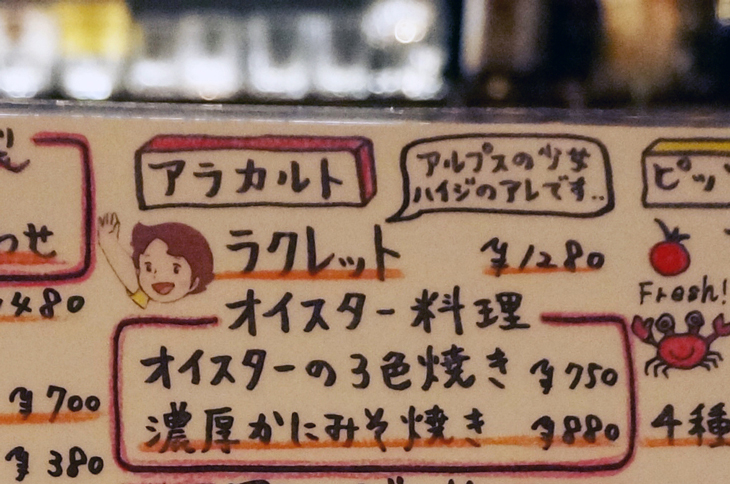 アラカルト
アルプスの少女
ハイジのアレです..
ラクレット ¥1280
オイスター料理
オイスターの3色焼き ¥750
濃厚かにみそ焼き ¥880
わせ
480
¥700
¥380
ピッ
Fresh!
4種